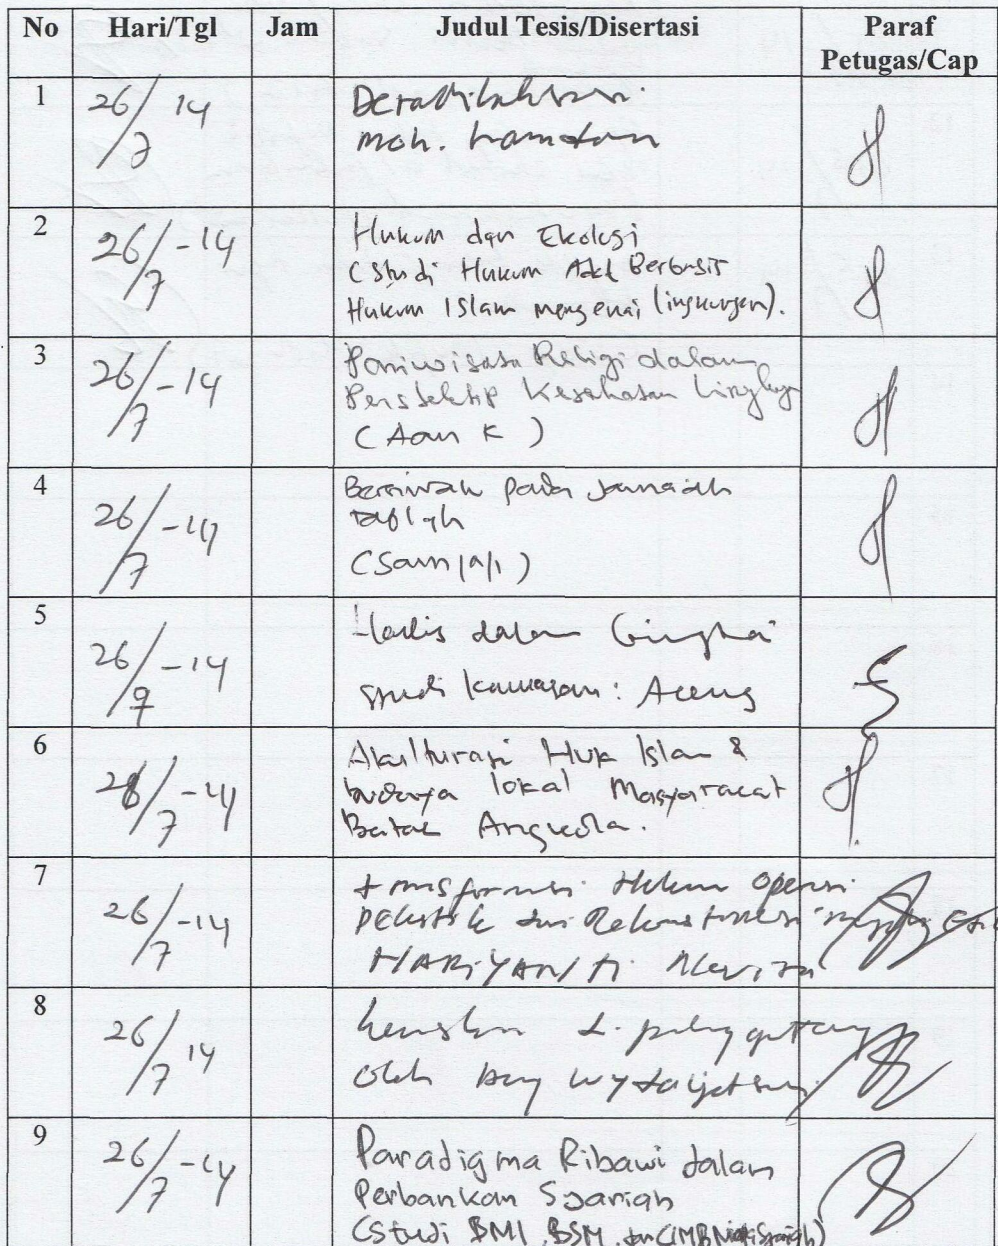 No Hari/Tgl Jam Judul Tesis/Disertasi Paraf Petugas/Cap
1 26/7 14
moh. hamdan
2 26/7 -14 Hukum dan Ekologi
(Studi Hukum Adat Berbasis
Hukum Islam mengenai lingkungan).
3 26/7 -14 Pariwisata Religi dalam
Perspektif Kesehatan
(Aan K)
4 26/7 -14 pada Jamaah
Tabligh
5 26/7 -14 Hadis dalam
Studi kawasan: Aceng
6 26/7 -14 Akulturasi Huk Islam &
budaya lokal Masyaracat
Batak Angkola.
7 26/7 -14 transformasi Hukum Operasi
plastik
8 26/7 14
oleh
9 26/7 -14 Paradigma Ribawi dalam
Perbankan Syariah
(Studi BMI, BSM, dan CIMB Niaga Syariah)